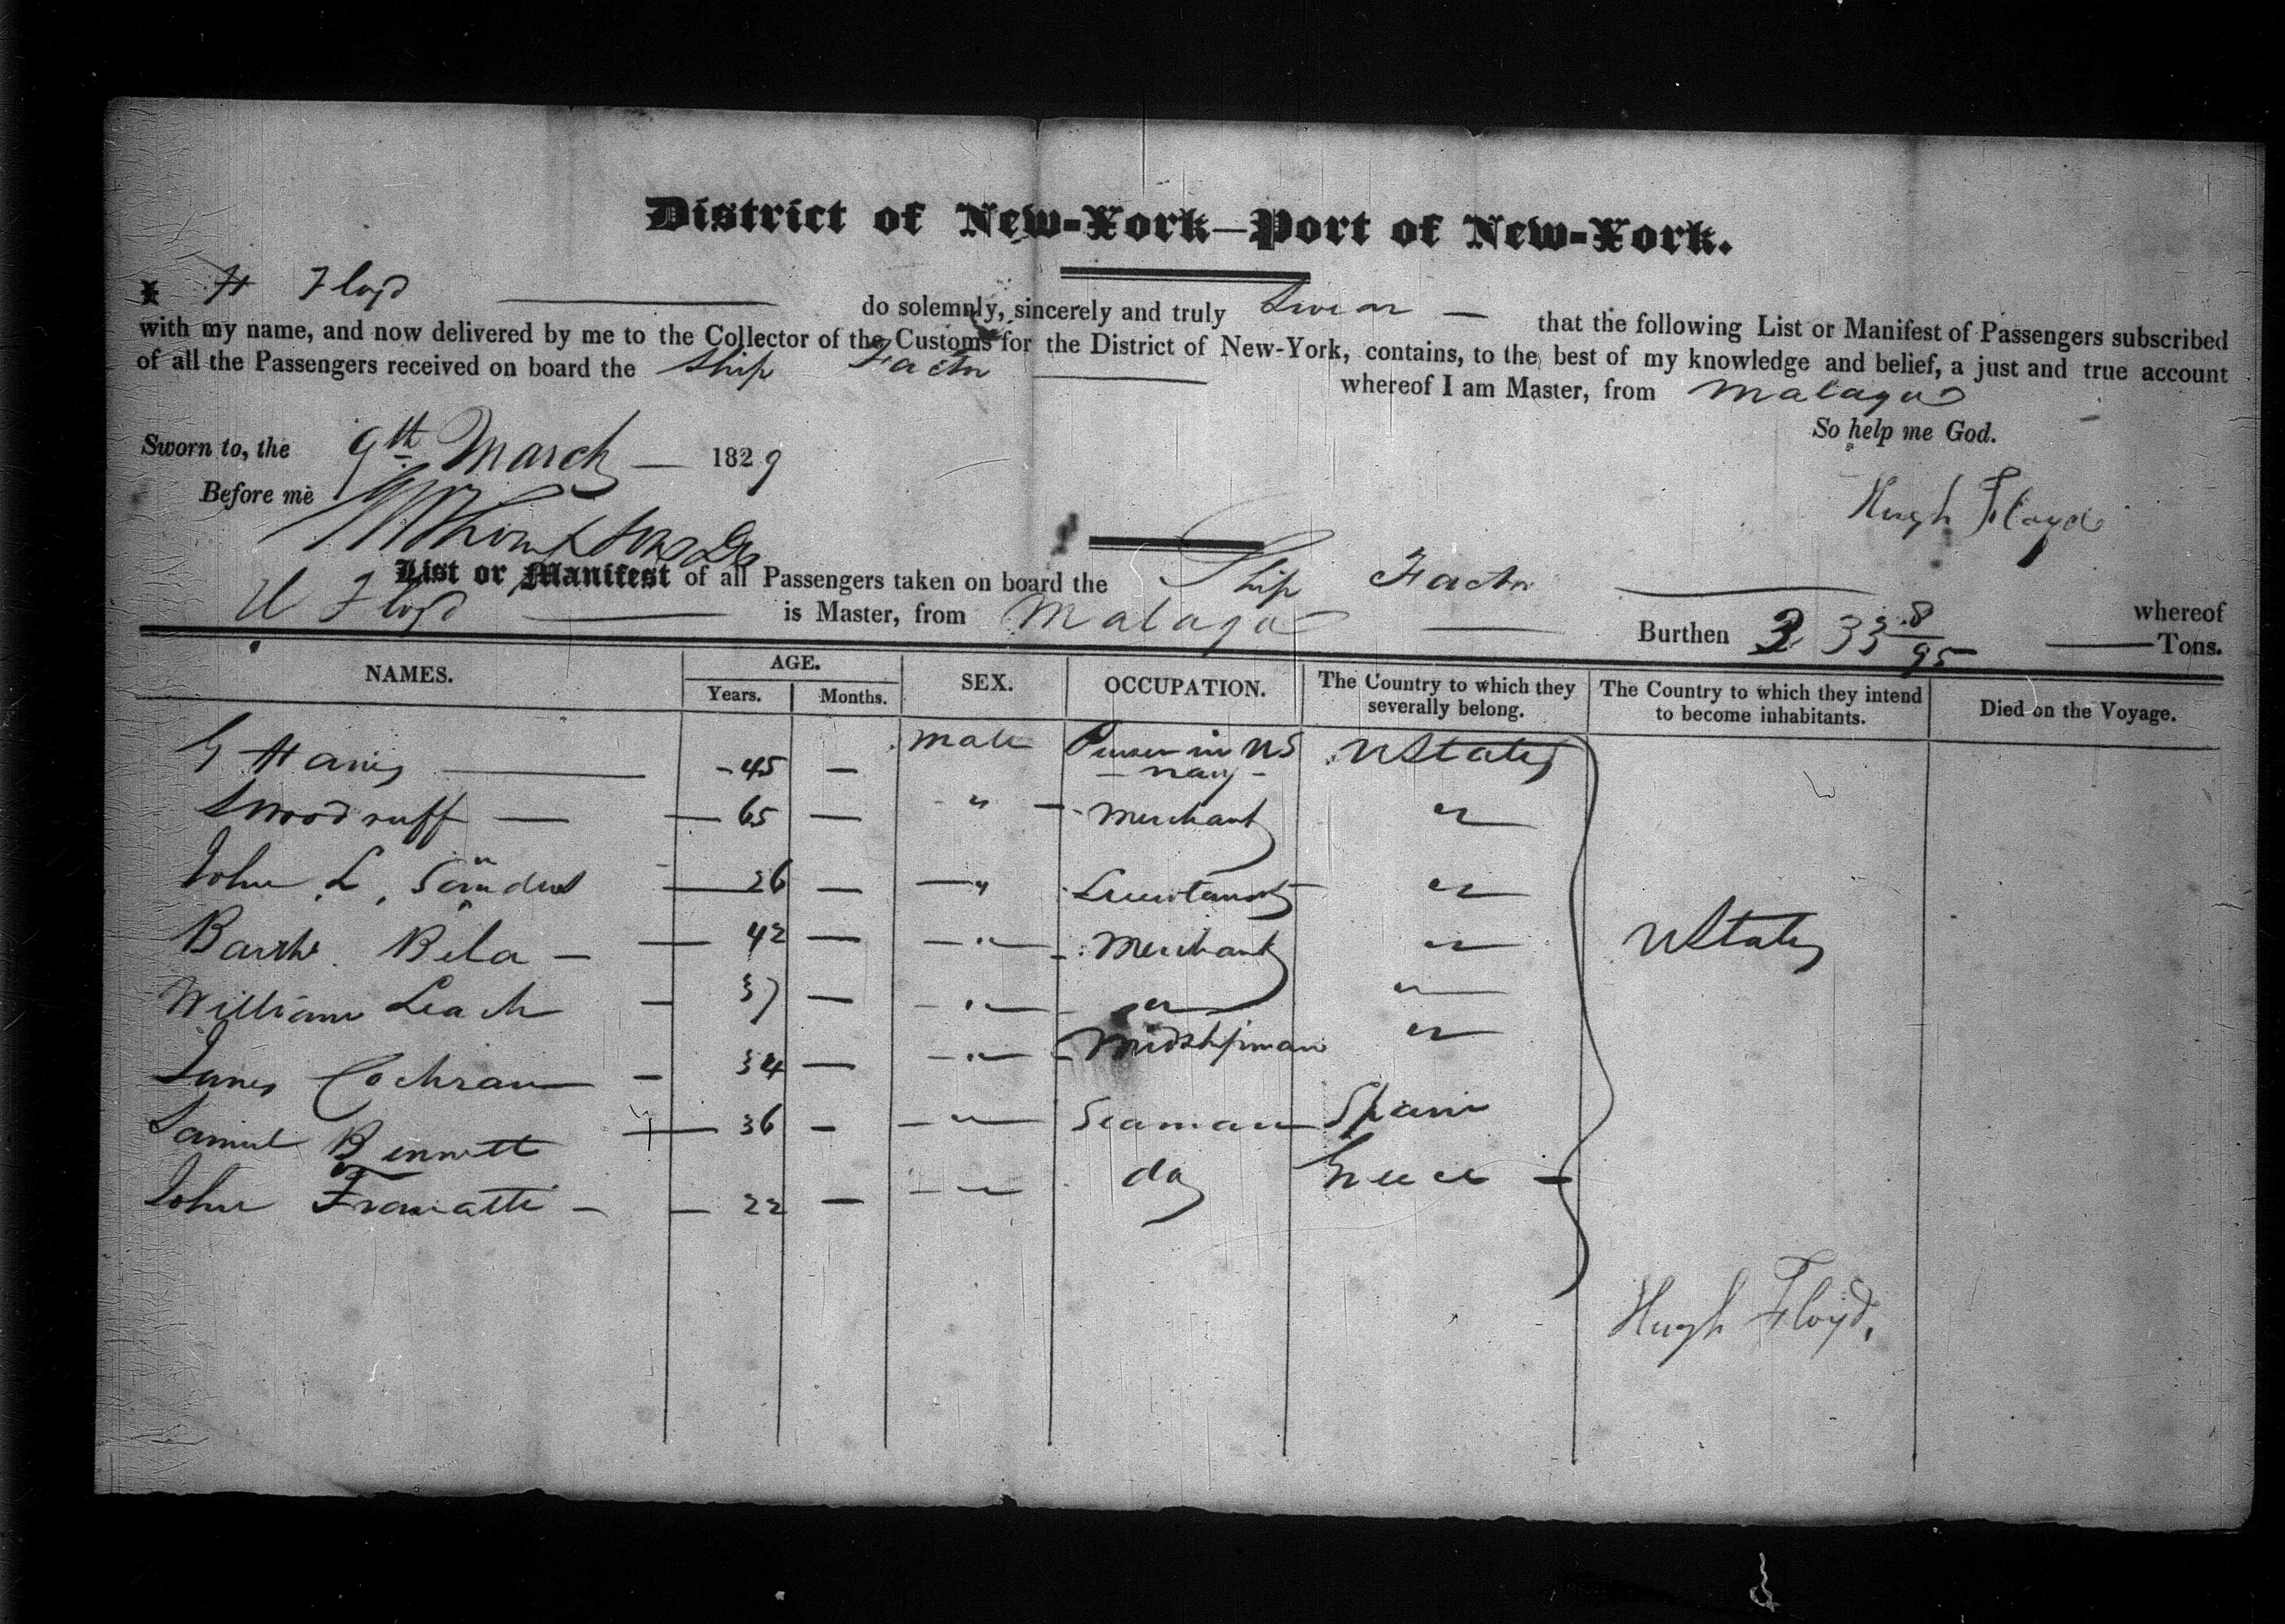 District of New-York—Port of New-York.
I H Floyd do solemnly, sincerely and truly Swear — that the following List or Manifest of Passengers subscribed
with my name, and now delivered by me to the Collector of the Customs for the District of New-York, contains, to the best of my knowledge and belief, a just and true account
of all the Passengers received on board the Ship Factor whereof I am Master, from Malaga
So help me God.
Sworn to, the 9th March — 1829
Before me
Hugh Floyd
List or Manifest of all Passengers taken on board the Ship Factor whereof
H Floyd is Master, from Malaga Burthen 333 8/95 Tons.
NAMES. AGE. SEX. OCCUPATION. The Country to which they severally belong. The Country to which they intend to become inhabitants. Died on the Voyage.
Years. Months.
G Harris — 45 — Male Purser in US Navy UStates
Woodruff — 65 — " Merchant "
John L. Sanders — 26 — " Lieutenant "
Bela — 42 — " Merchant " UStates
William Leach — 37 — " " "
James Cochran — 34 — " Midshipman "
Samuel Bennett — 36 — " Seaman Spain
John — 22 — " do Greece —
Hugh Floyd.